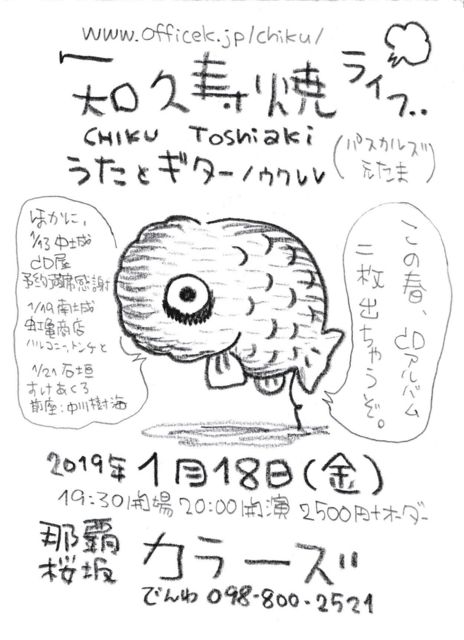 www.officek.jp/chiku/
知久寿焼 ライブ..
CHIKU Toshiaki
うたとギター/ウクレレ
(パスカルズ
元たま)
ほかに、
1/13 中城
CD屋
予約満席感謝
1/19 南城
虹亀商店
1/21 石垣
すけあくろ
前座:中川樹海
この春、CDアルバム
二枚出ちゃうぞ。
2019年1月18日(金)
19:30開場 20:00開演 2500円+オーダー
那覇
桜坂
カラーズ
でんわ 098-800-2521